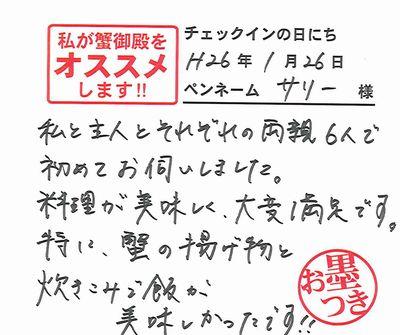 私が蟹御殿を
オススメ
します!!
チェックインの日にち
H26年1月26日
ペンネーム サリー 様
私と主人とそれぞれの両親6人で
初めてお伺いしました。
料理が美味しく、大変満足です。
特に、蟹の揚げ物と
炊きこみご飯が
美味しかったです!!
お墨つき